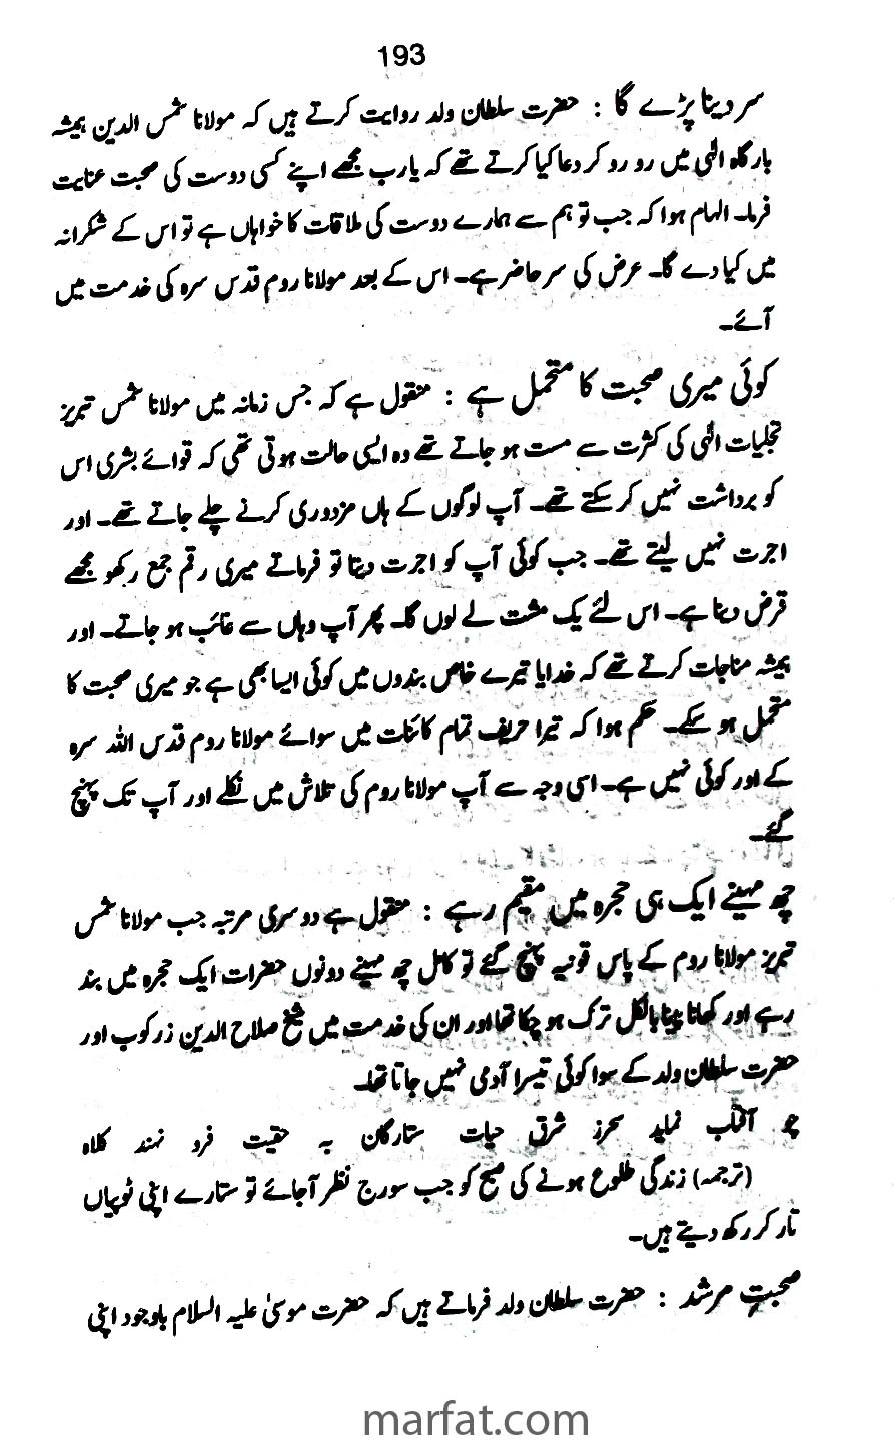 193
سر دینا پڑے گا : حضرت سلطان ولد روایت کرتے ہیں کہ مولانا شمس الدین ہمیشہ
بارگاہ الٰہی میں رو رو کر دعا کیا کرتے تھے کہ یارب مجھے اپنے کسی دوست کی صحبت عنایت
فرما۔ الہام ہوا کہ جب تو ہم سے ہمارے دوست کی ملاقات کا خواہاں ہے تو اس کے شکرانہ
میں کیا دے گا۔ عرض کی سر حاضر ہے۔ اس کے بعد مولانا روم قدس سرہ کی خدمت میں
آئے۔
کوئی میری صحبت کا متحمل ہے : منقول ہے کہ جس زمانہ میں مولانا شمس تبریز
تجلیات الٰہی کی کثرت سے مست ہو جاتے تھے وہ ایسی حالت ہوتی تھی کہ قوائے بشری اس
کو برداشت نہیں کر سکتے تھے۔ آپ لوگوں کے ہاں مزدوری کرنے چلے جاتے تھے۔ اور
اجرت نہیں لیتے تھے۔ جب کوئی آپ کو اجرت دیتا تو فرماتے میری رقم جمع رکھو مجھے
قرض دینا ہے۔ اس لئے یک مشت لے لوں گا۔ پھر آپ وہاں سے غائب ہو جاتے۔ اور
ہمیشہ مناجات کرتے تھے کہ خدایا تیرے خاص بندوں میں کوئی ایسا بھی ہے جو میری صحبت کا
متحمل ہو سکے۔ حکم ہوا کہ تیرا حریف تمام کائنات میں سوائے مولانا روم قدس اللہ سرہ
کے اور کوئی نہیں ہے۔ اسی وجہ سے آپ مولانا روم کی تلاش میں نکلے اور آپ تک پہنچ
گئے۔
چھ مہینے ایک ہی حجرہ میں مقیم رہے : منقول ہے دوسری مرتبہ جب مولانا شمس
تبریز مولانا روم کے پاس قونیہ پہنچ گئے تو کامل چھ مہینے دونوں حضرات ایک حجرہ میں بند
رہے اور کھانا پینا بالکل ترک ہو چکا تھا اور ان کی خدمت میں شیخ صلاح الدین زرکوب اور
حضرت سلطان ولد کے سوا کوئی تیسرا آدمی نہیں جاتا تھا۔
چو آفتاب نماید سحرز شرق حیات ستارگان بہ حقیقت فرو نہند کلاہ
(ترجمہ) زندگی طلوع ہونے کی صبح کو جب سورج نظر آجائے تو ستارے اپنی ٹوپیاں
تار کر رکھ دیتے ہیں۔
صحبتِ مرشد : حضرت سلطان ولد فرماتے ہیں کہ حضرت موسیٰ علیہ السلام باوجود اپنی
marfat.com